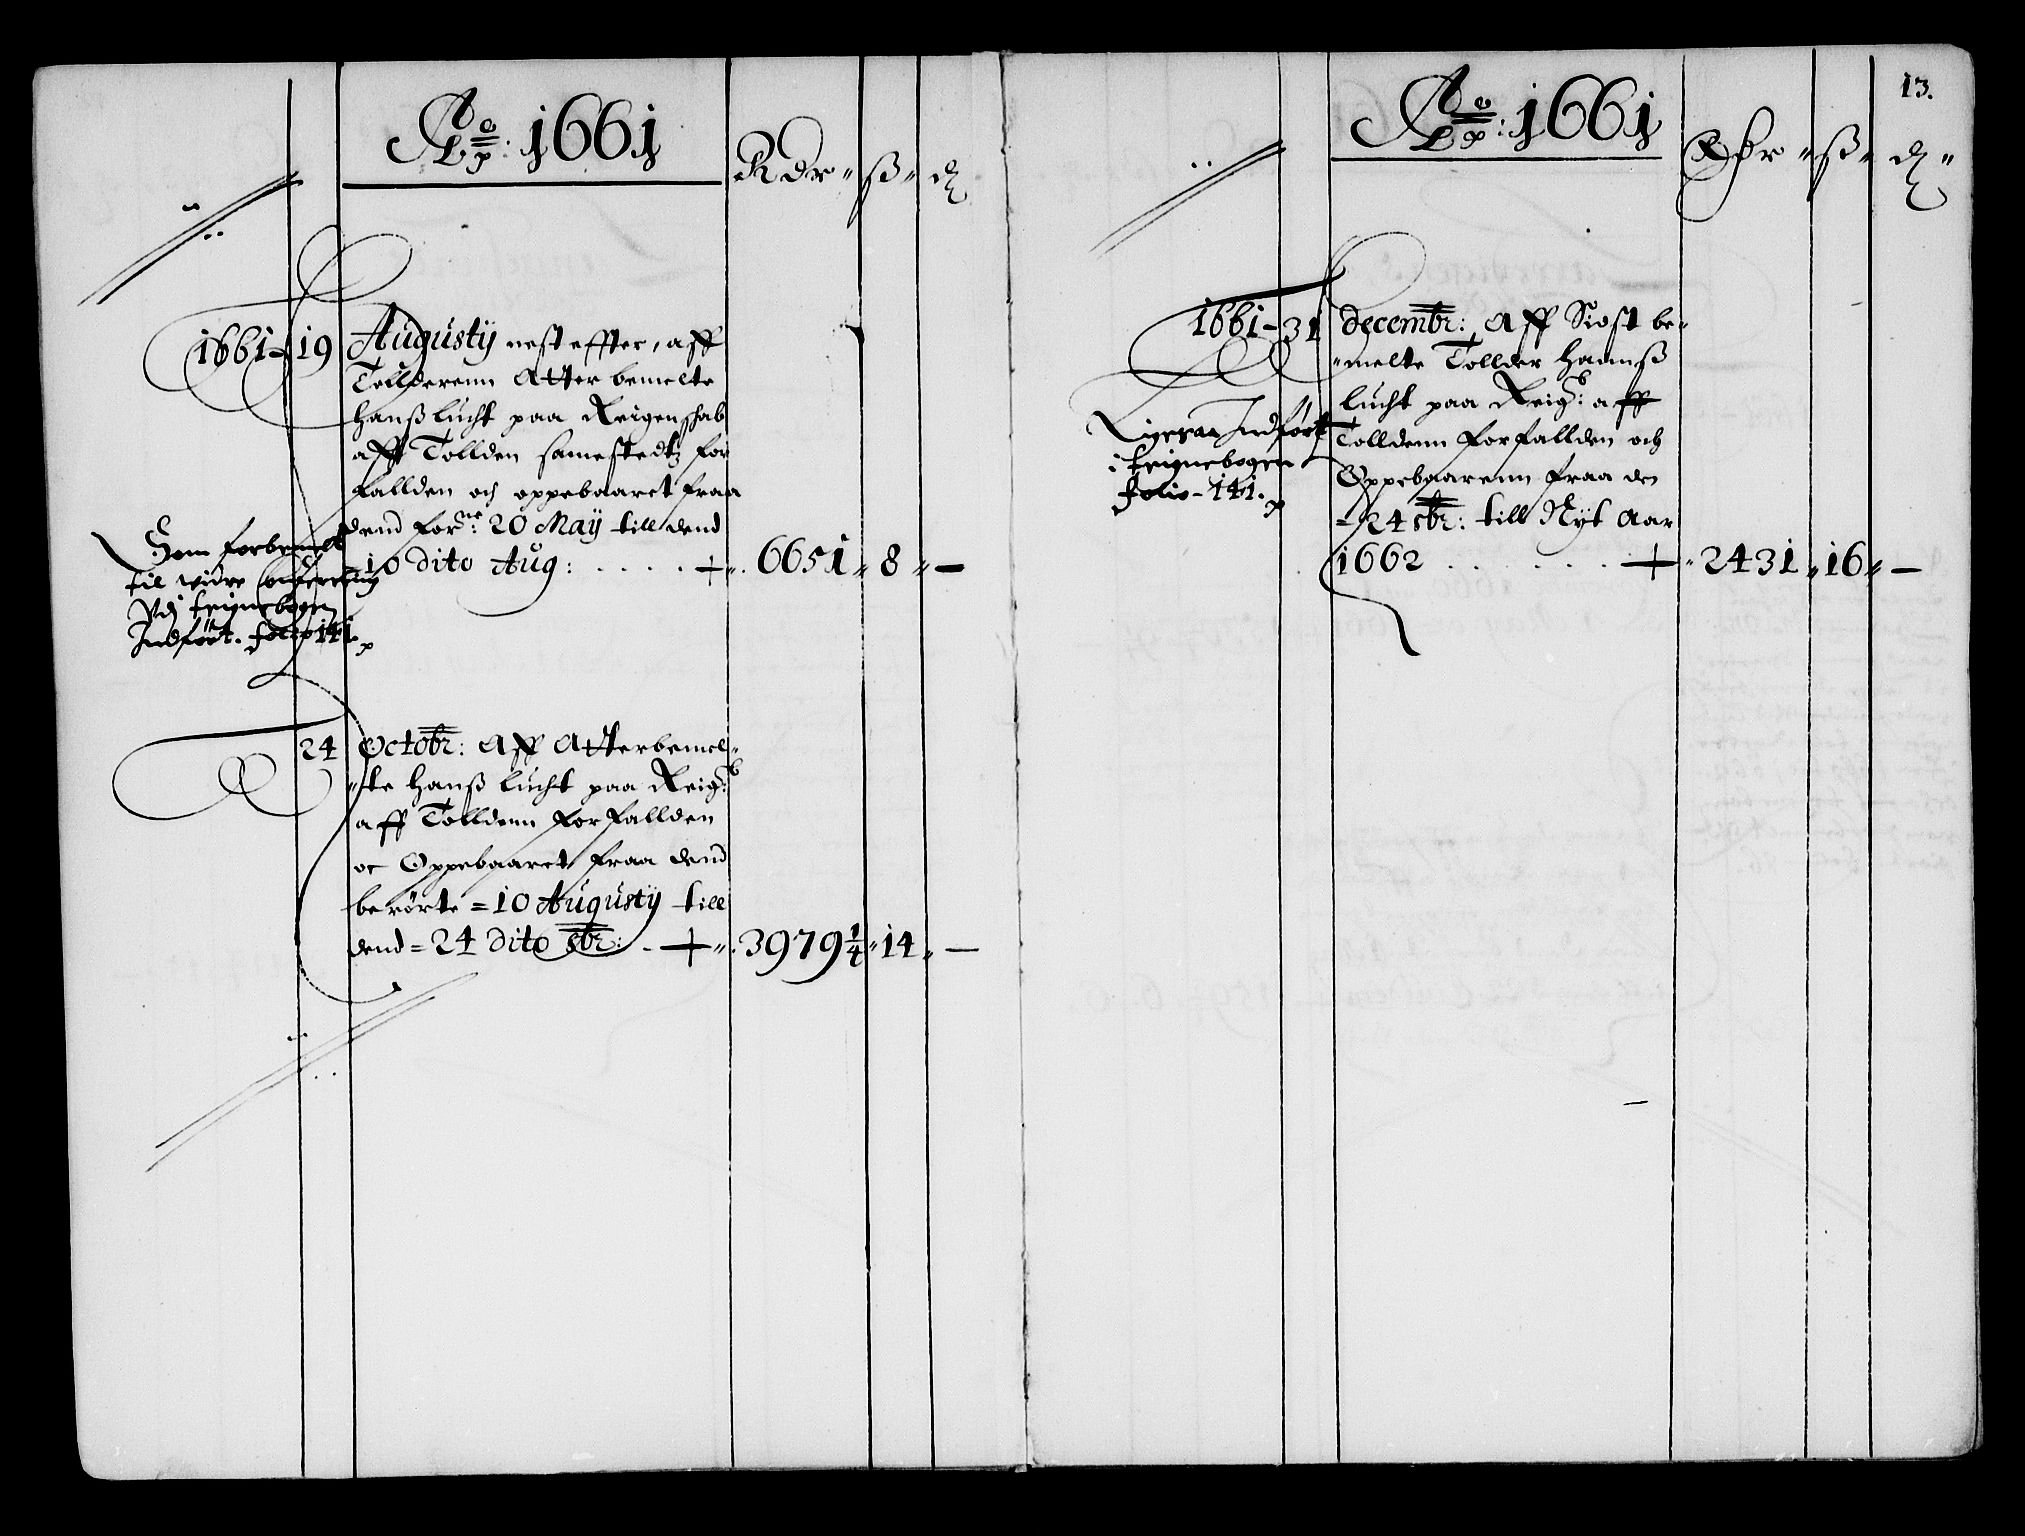 Ao: 1661
Rdr ß
1661 - 19 Augustÿ nest effter, aff
Tollderenn Atterbemelte
Hanß Lucht paa Reigenschab
aff Tollden samestedtz for
fallden och oppebaaret fraa
dend forne: 20 Maÿ till dend
10 dito Aug: 6651 8 –
Som forbemelt
til widre
Udj Reignebogen
Indført. folio 141.
24 Octobr: Aff Atterbemel-
te Hanß Lucht paa Reigb:
aff Tolldenn forfallden
oc Oppebaaret fraa dend
berørte = 10 Augustÿ till
dend = 24 dito 8br: 3979¼ 14 –
13.
Ao: 1661
ß
1661 - 31 Decembr: Aff Siost be-
melte Tollder Hannß
Lucht paa Reigb: aff
Tolldenn forfallden och
Oppebaarenn fraa den
24 8br: till Nyt Aar
1662 2431 16 –
Ligesaa Indført
i Reignebogen
folio - 141.